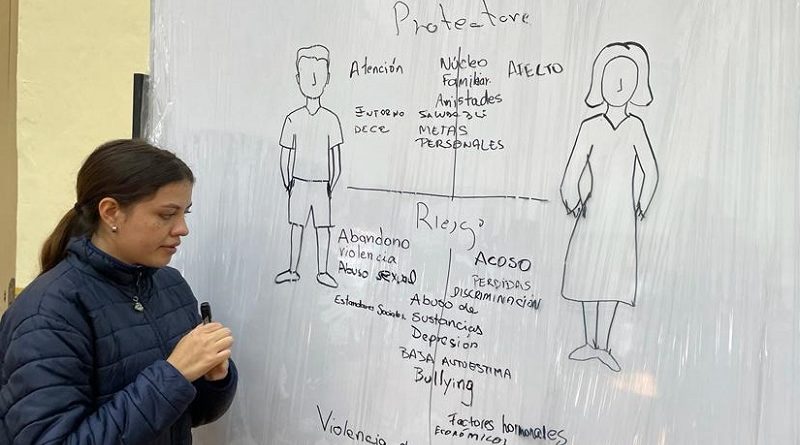 Protectore
Atención
Núcleo
Familiar
AFECTO
Amistades
ENTORNO SALUDABLE
DECE METAS
PERSONALES
Riesgo
Abandono
violencia
Abuso sexual
ACOSO
PERDIDAS
DISCRIMINACIÓN
Estandares Sociales
Abuso de
Sustancias
Depresión
BAJA AUTOESTIMA
Bullying
Factores hormonales
ECONÓMICOS
Violencia